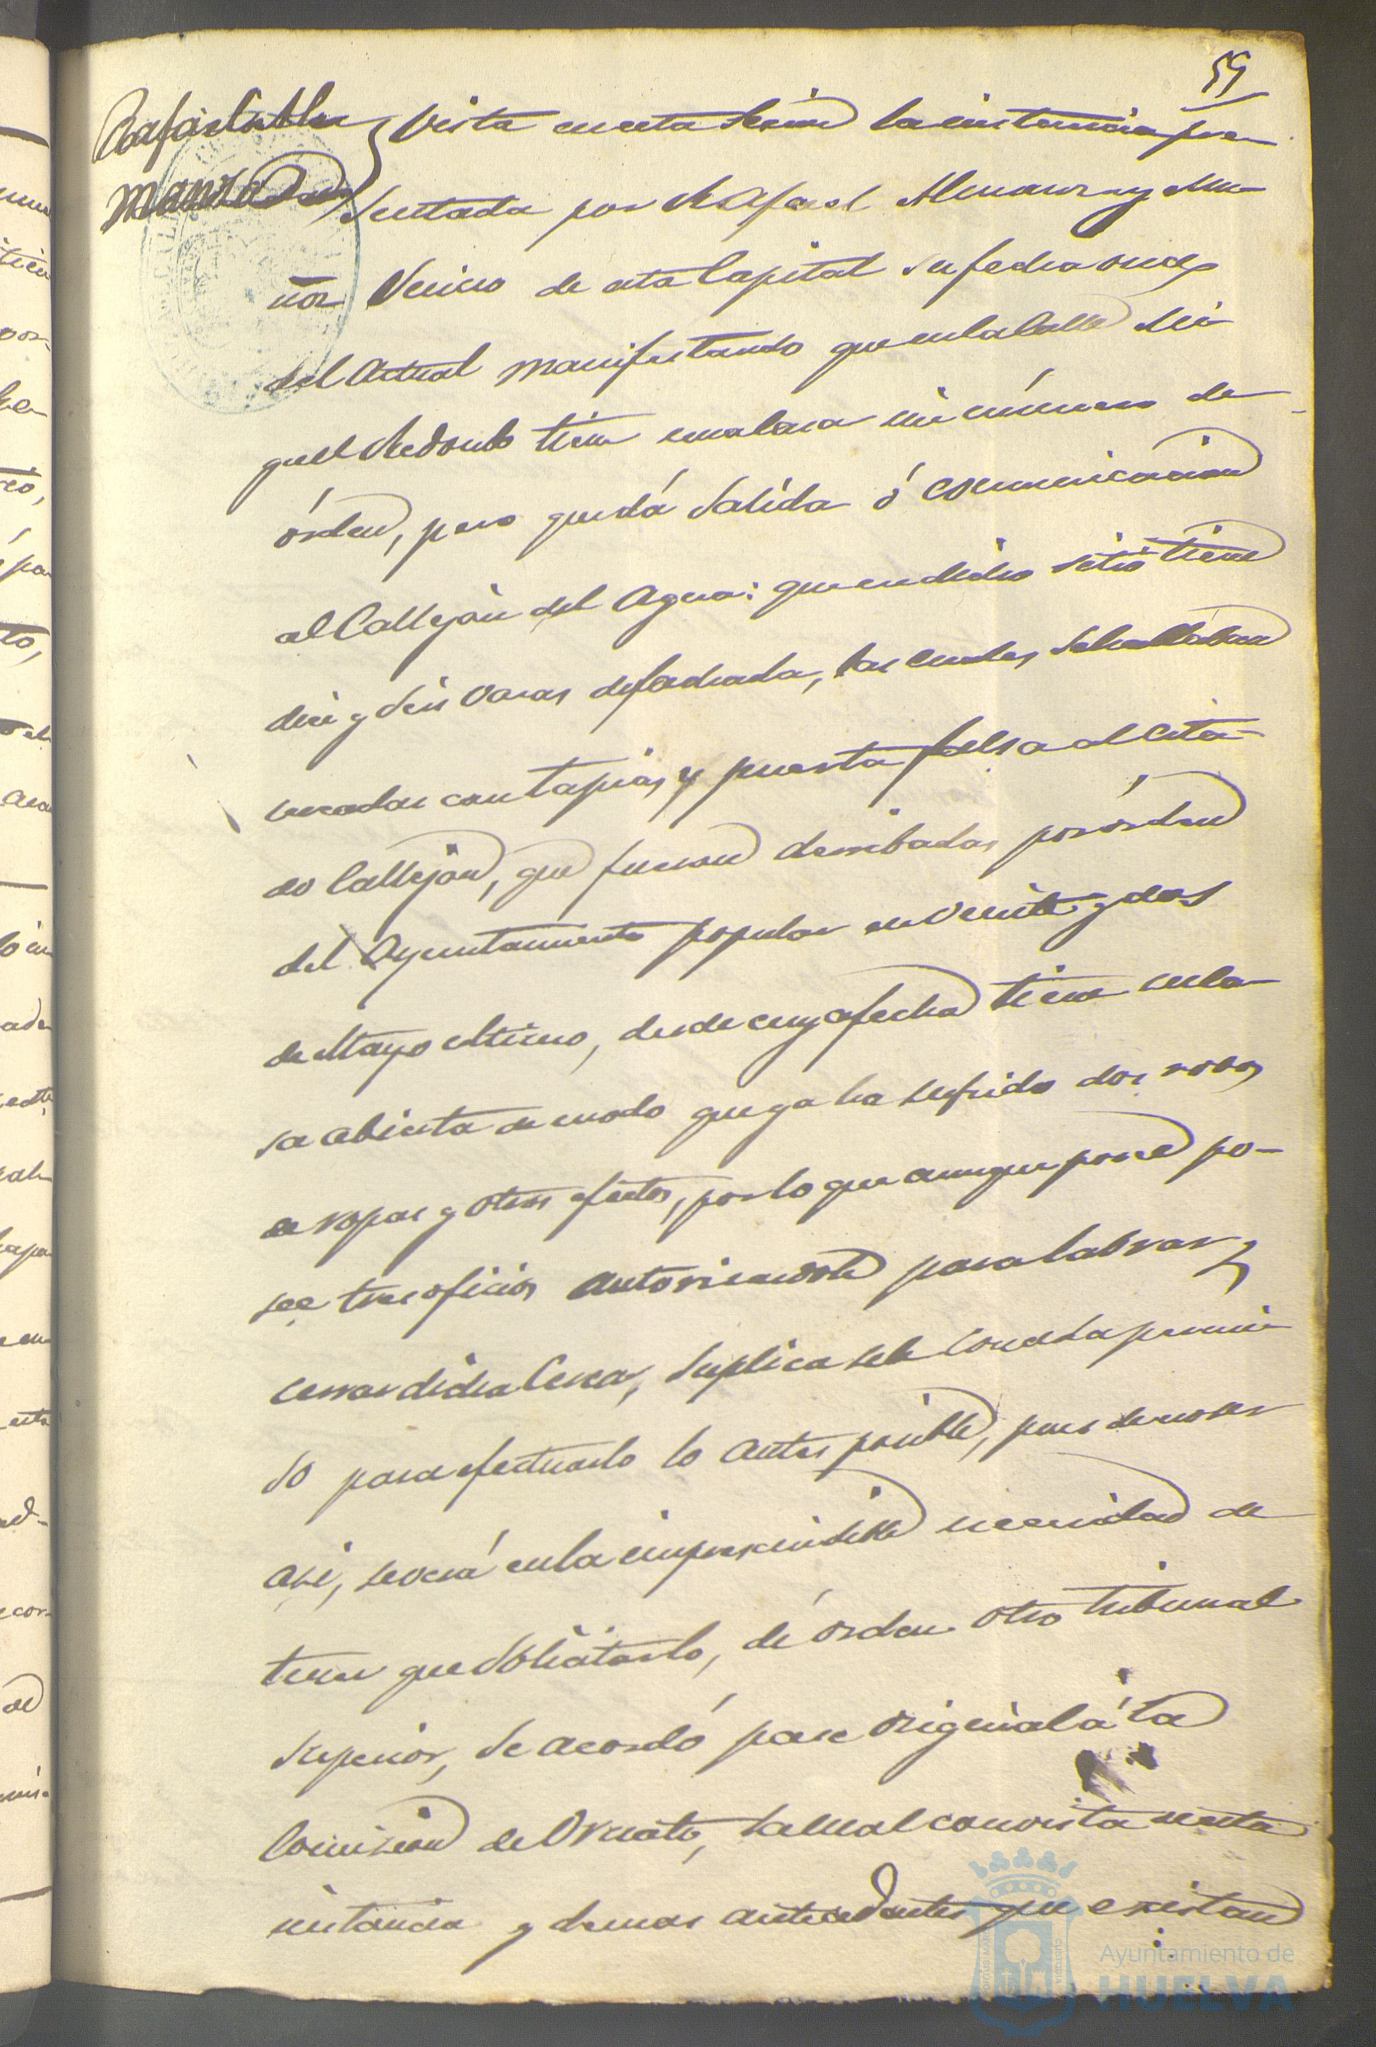 59
Vista en esta sesion la instancia pre-
sentada por Rafael Almanza y Mu-
ñoz Vecino de esta Capital su fecha once
del actual manifestando que en la Calle Mi-
guel Redondo tiene una Casa sin número de
órden, pero que dá salida ó comunicacion
al Callejón del Agua: que en dicho sitio tiene
diez y seis varas de fachada, las cuales se hallaban
cercadas con tapias y puerta falsa al cita-
do Callejón, que fueron derribadas por órden
del Ayuntamiento popular en veinte y dos
de Mayo último, desde cuya fecha tiene su ca-
sa abierta de modo que ya ha sufrido dos robos
de ropas y otros efectos, por lo que aunque posee po-
see tres oficios autorizandole para labrar y
cerrar dicha Cerca, suplica se le conceda permi-
so para efectuarlo lo antes posible, pues de no ser
asi, se verá en la imprescindible necesidad de
tener que solicitarlo, de órden otro tribunal
superior, se acordó pase original á la
Comision de Ornato, la cual con vista de esta
instancia y demas antecedentes que existan
Ayuntamiento de
HUELVA